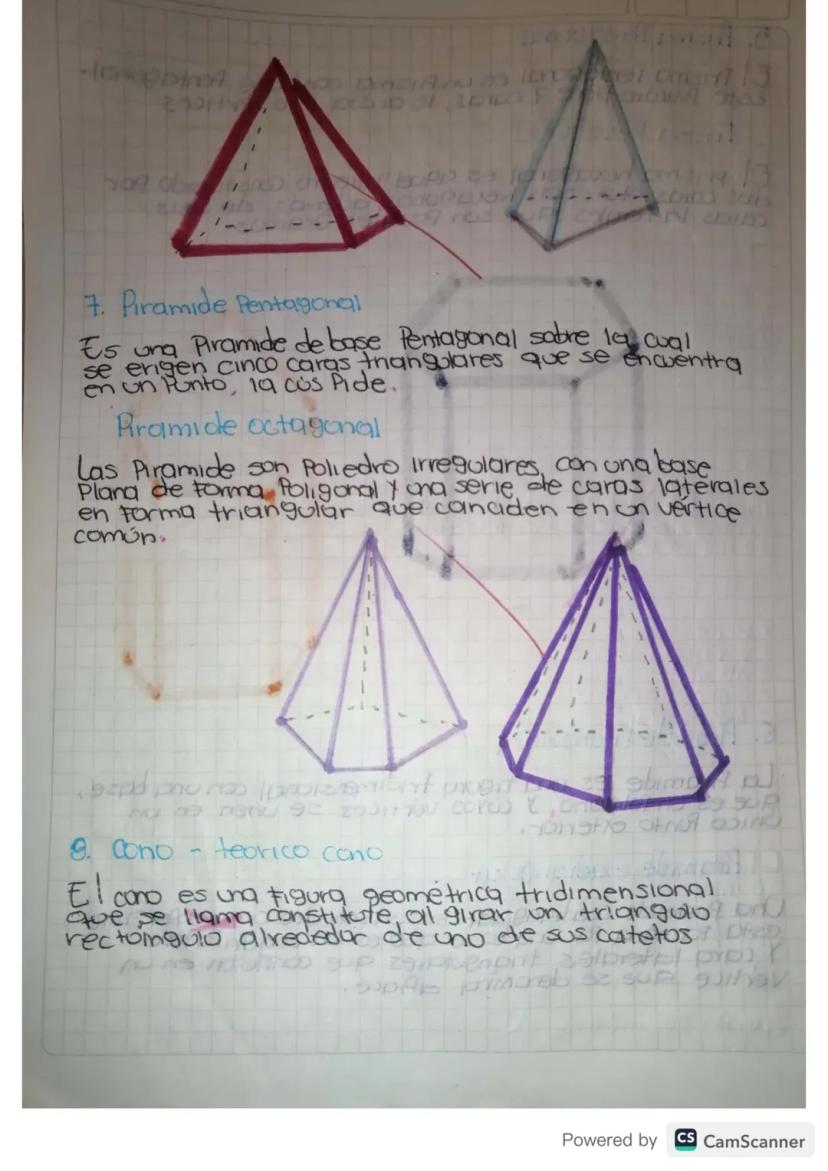 7. Piramide Pentagonal
Es una Piramide de base Pentagonal sobre la cual
se erigen cinco caras triangulares que se encuentra
en un Punto, la cós Pide.
Piramide octagonal
Las Piramide son Poliedro irregulares, con una base
Plana de Forma Poligonal y una serie de caras laterales
en Forma triangular que canciden en un vértice
común.
8. Cono - teorico cono
El cono es una Figura geométrica tridimensional
que se llama constitute al girar un triangulo
rectoingulo alrededar de uno de sus catetos
Powered by CS CamScanner